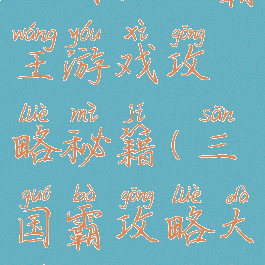 wáng yóu xì gōng
王游戏攻
lüè mì jí sān
略秘籍(三
guó bà gōng lüè dà
国霸攻略大